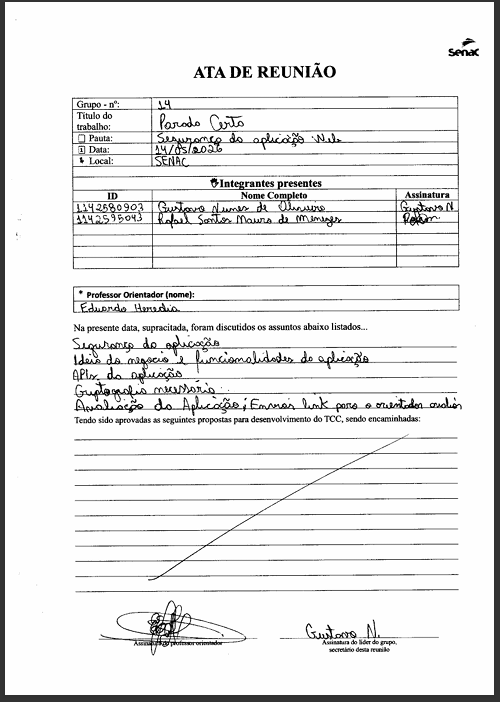 Senac
ATA DE REUNIÃO
Grupo - nº: 14
Título do trabalho: Parada Certa
Pauta: Segurança da aplicação Web
Data: 14/05/2026
Local: SENAC
Integrantes presentes
ID Nome Completo Assinatura
1142580903 Gustavo Nunes de Oliveira Gustavo N.
1142595043 Rafael Santos Mauro de Menezes Rafael
* Professor Orientador (nome):
Eduardo Heredia
Na presente data, supracitada, foram discutidos os assuntos abaixo listados...
Segurança da aplicação
Ideia do negocio e funcionalidades da aplicação
APIs da aplicação
Cryptografia necessária
Avaliação da Aplicação; Enviar link para o orientador avaliar
Tendo sido aprovadas as seguintes propostas para desenvolvimento do TCC, sendo encaminhadas:
Gustavo N.
Assinatura do professor orientador
Assinatura do líder do grupo,
secretário desta reunião